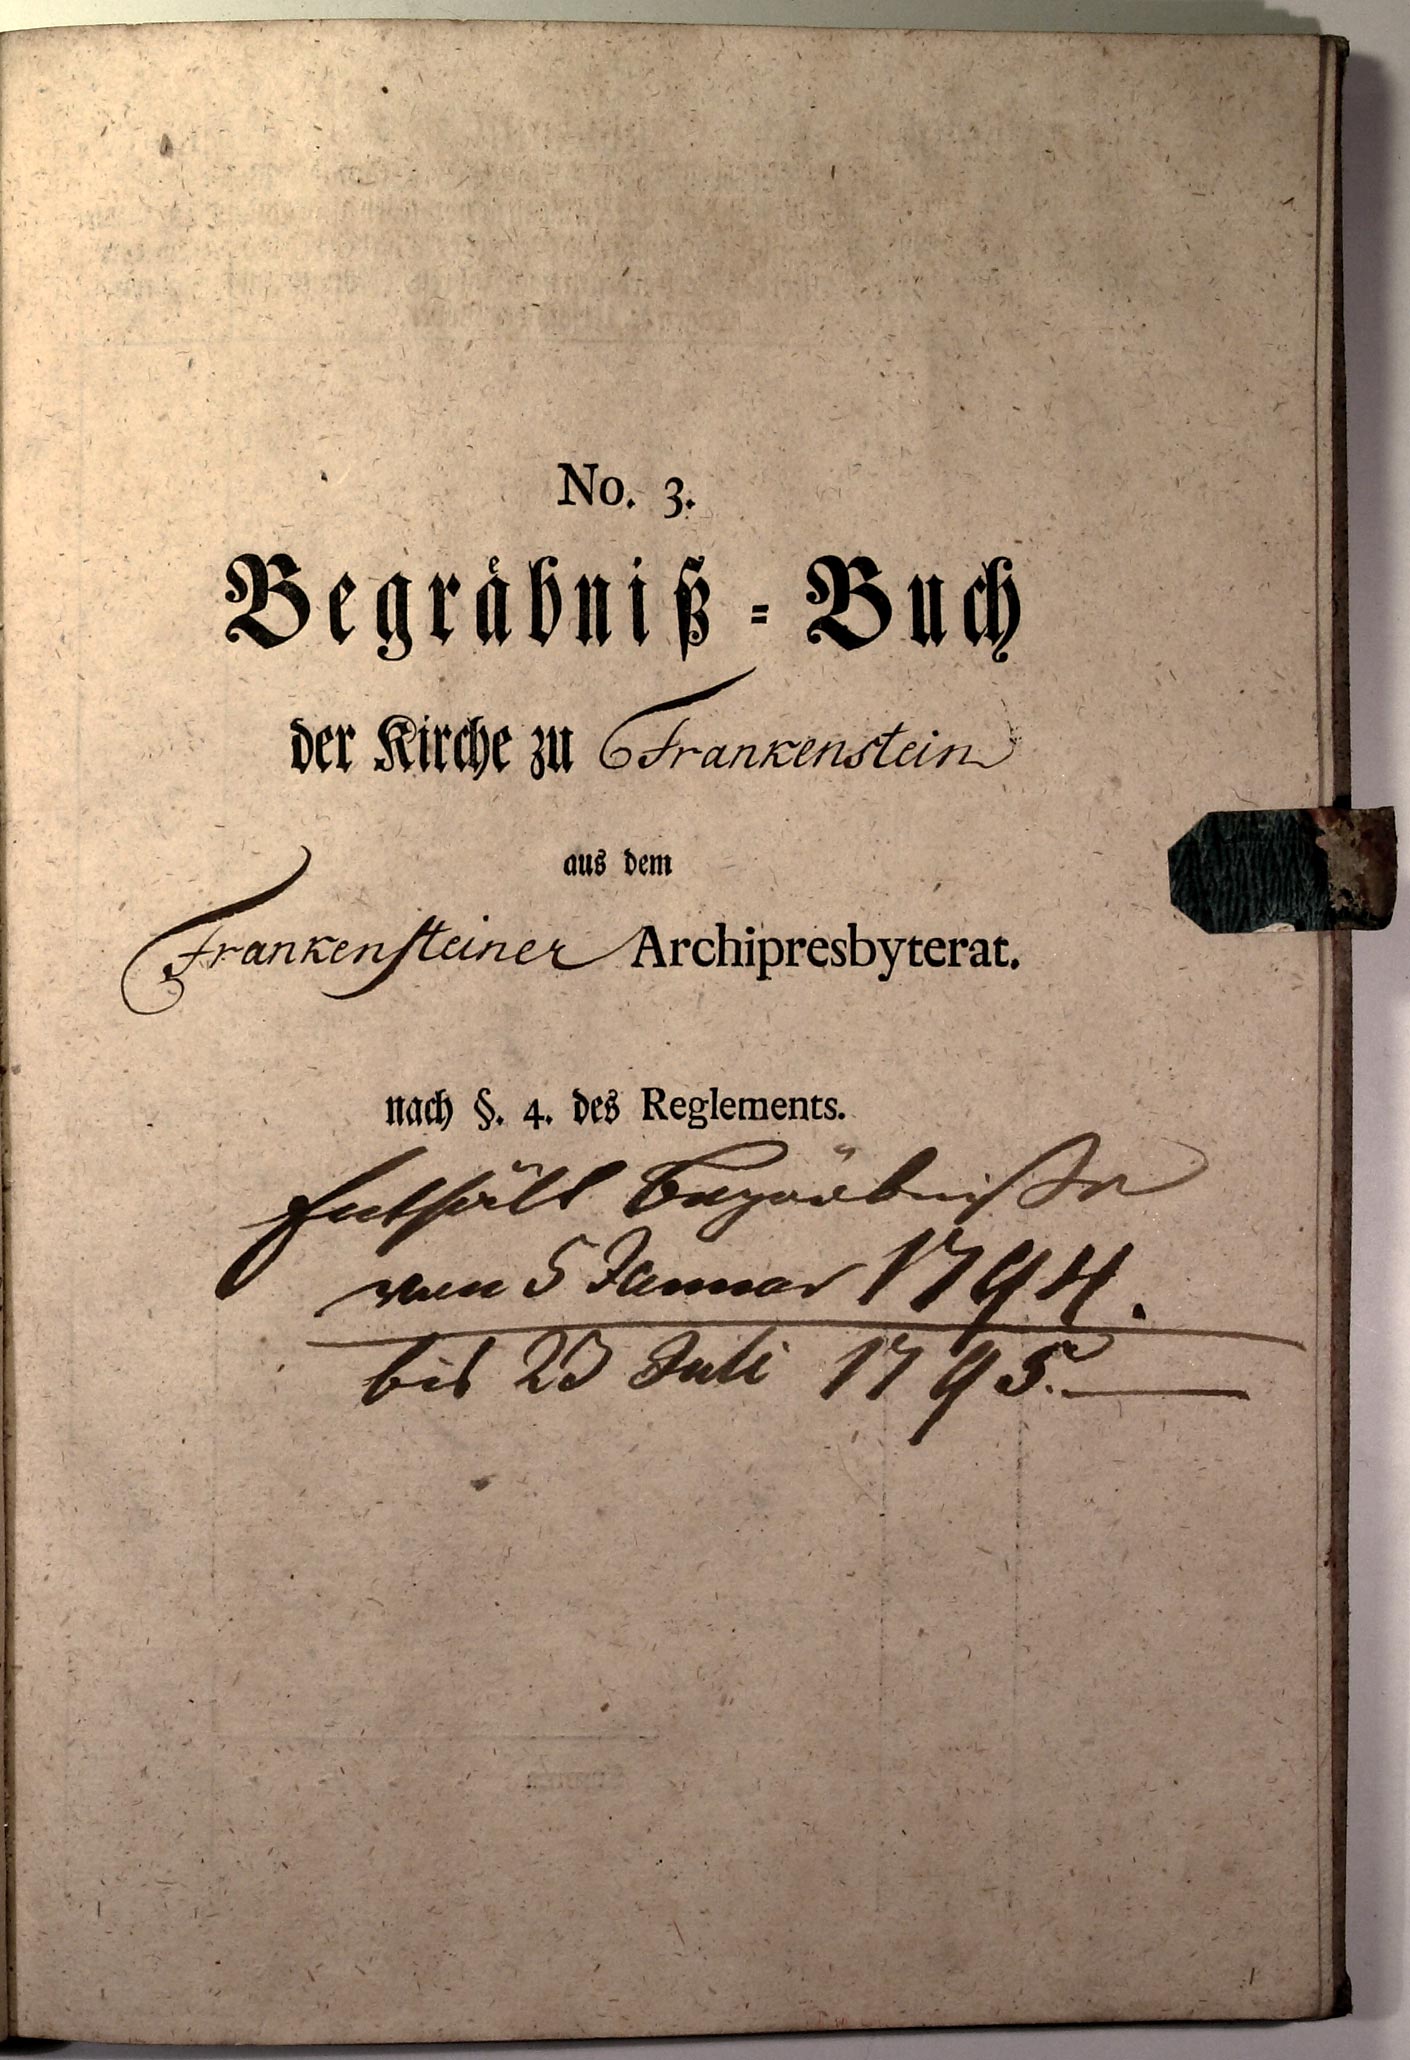 No. 3.
Begräbniß = Buch
der Kirche zu Frankenstein
aus dem
Frankensteiner Archipresbyterat.
nach §. 4. des Reglements.
Enthält Begräbniße
vom 5 Januar 1794.
bis 23 Juli 1795.